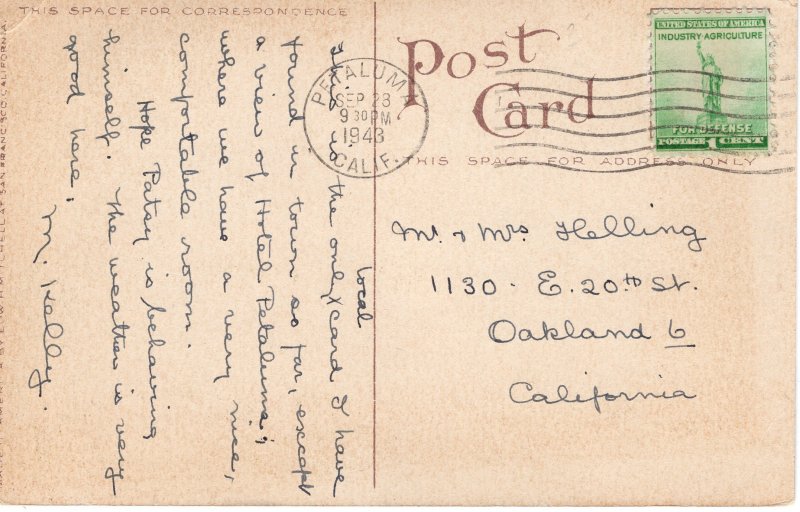 THIS SPACE FOR CORRESPONDENCE
This is the only local card I have
found in town so far, except
a view of Hotel Petaluma,
where we have a very nice,
comfortable room.
Hope Patsy is behaving
himself. The weather is very
good here.
M. Kelley.
Post
Card
THIS SPACE FOR ADDRESS ONLY
PETALUMA
SEP 23
9 30 PM
1943
CALIF.
UNITED STATES OF AMERICA
INDUSTRY AGRICULTURE
FOR DEFENSE
POSTAGE 1 CENT
Mr. & Mrs Helling
1130 - E. 20th St.
Oakland 6
California
MITCHELL AT SAN FRANCISCO, CALIFORNIA